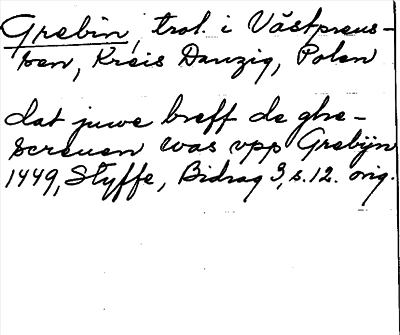 Grebin, trol. i Västpreus-
sen, Kreis Danzig, Polen
dat juwe breff de ghe-
screuen was vpp Grebÿn
1449, Styffe, Bidrag 3, s. 12. orig.